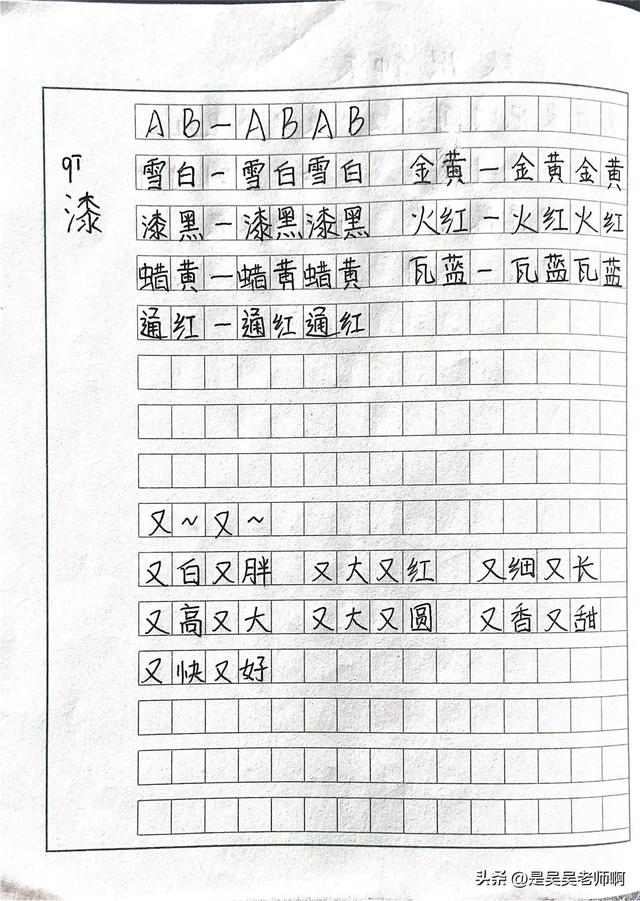 AB-ABAB
雪白-雪白雪白 金黄-金黄金黄
qī
漆
漆黑-漆黑漆黑 火红-火红火红
蜡黄-蜡黄蜡黄 瓦蓝-瓦蓝瓦蓝
通红-通红通红
又~又~
又白又胖 又大又红 又细又长
又高又大 又大又圆 又香又甜
又快又好
头条 @是吴吴老师啊